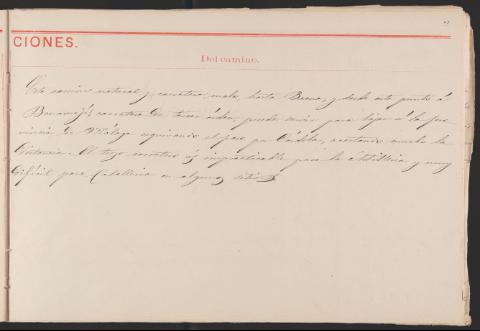 CIONES.
Del camino.
Este camino natural y carretero, malo, hasta Baena, y desde este punto á
Benamejí carretera de tercer órden, puede servir para bajar á la pro-
vincia de Málaga siguiendo el paso por Córdoba, acortando mucho la
distancia. El trozo carretero es impracticable para la Artilleria y muy
dificil para Caballeria en algunos sitios